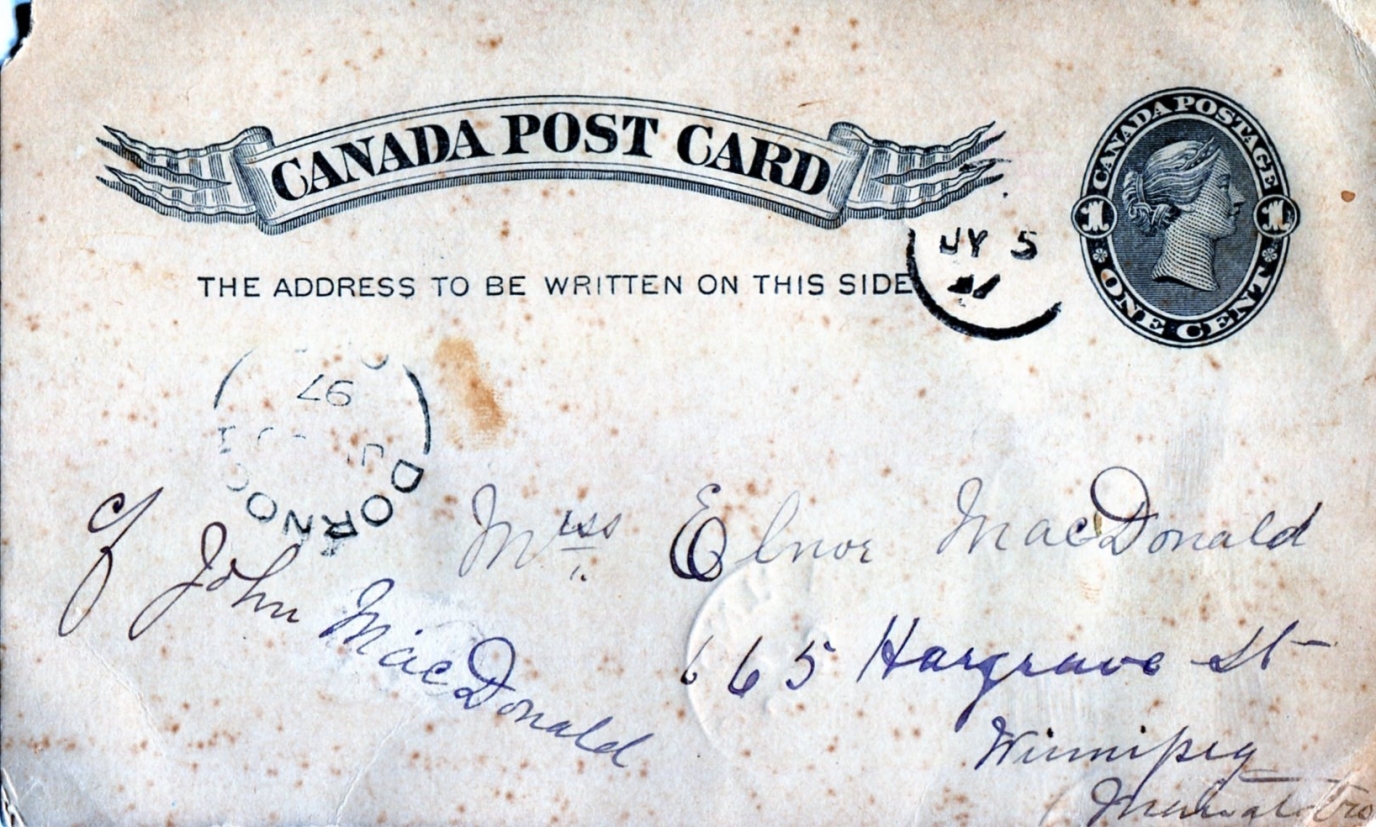 CANADA POST CARD
CANADA POSTAGE
1 1
ONE CENT
THE ADDRESS TO BE WRITTEN ON THIS SIDE
JY 5
97
DORNO
Miss Elnor MacDonald
c/ John MacDonald
665 Hargrave St
Winnipeg